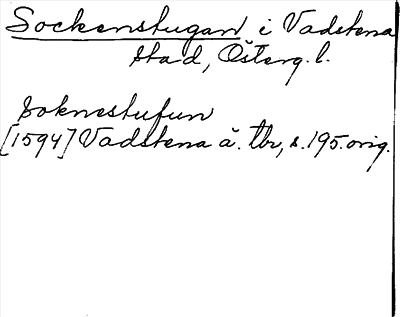 Sockenstugan i Vadstena
stad, Österg. l.
soknestufun
[1594] Vadstena ä. tbr, s. 195. orig.